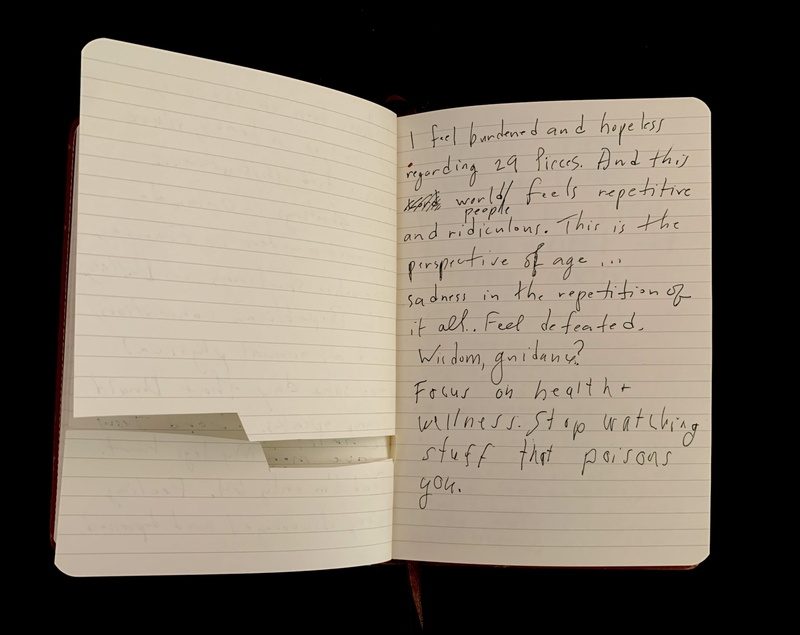 I feel burdened and hopeless
regarding 29 Pieces. And this
world/ feels repetitive
people
and ridiculous. This is the
perspective of age ...
sadness in the repetition of
it all.. Feel defeated.
Wisdom, guidance?
Focus on health +
wellness. Stop watching
stuff that poisons
you.